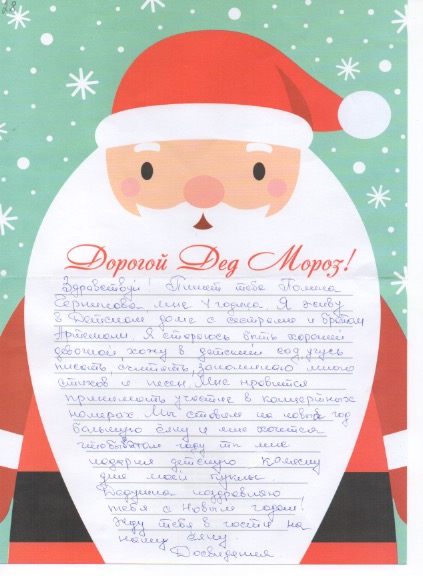 28
Дорогой Дед Мороз!
Здравствуй! Пишет тебе Полина
мне 4 годика. Я живу
в Детском доме с сестрами и братом
Артемом. Я стораюсь быть хорошей
девочкой, хожу в детский сад, учусь
писать, считать, запоминаю много
стихов и песен. Мне нравится
принимать участие в концертных
номерах. Мы ставили на новый год
большую ёлку и мне хочется
чтобы в том году ты мне
подарил детскую коляску
для моей куклы.
Дедушка поздравляю
тебя с Новым годом!
Жду тебя в гости на
нашу ёлку.
Досвидания